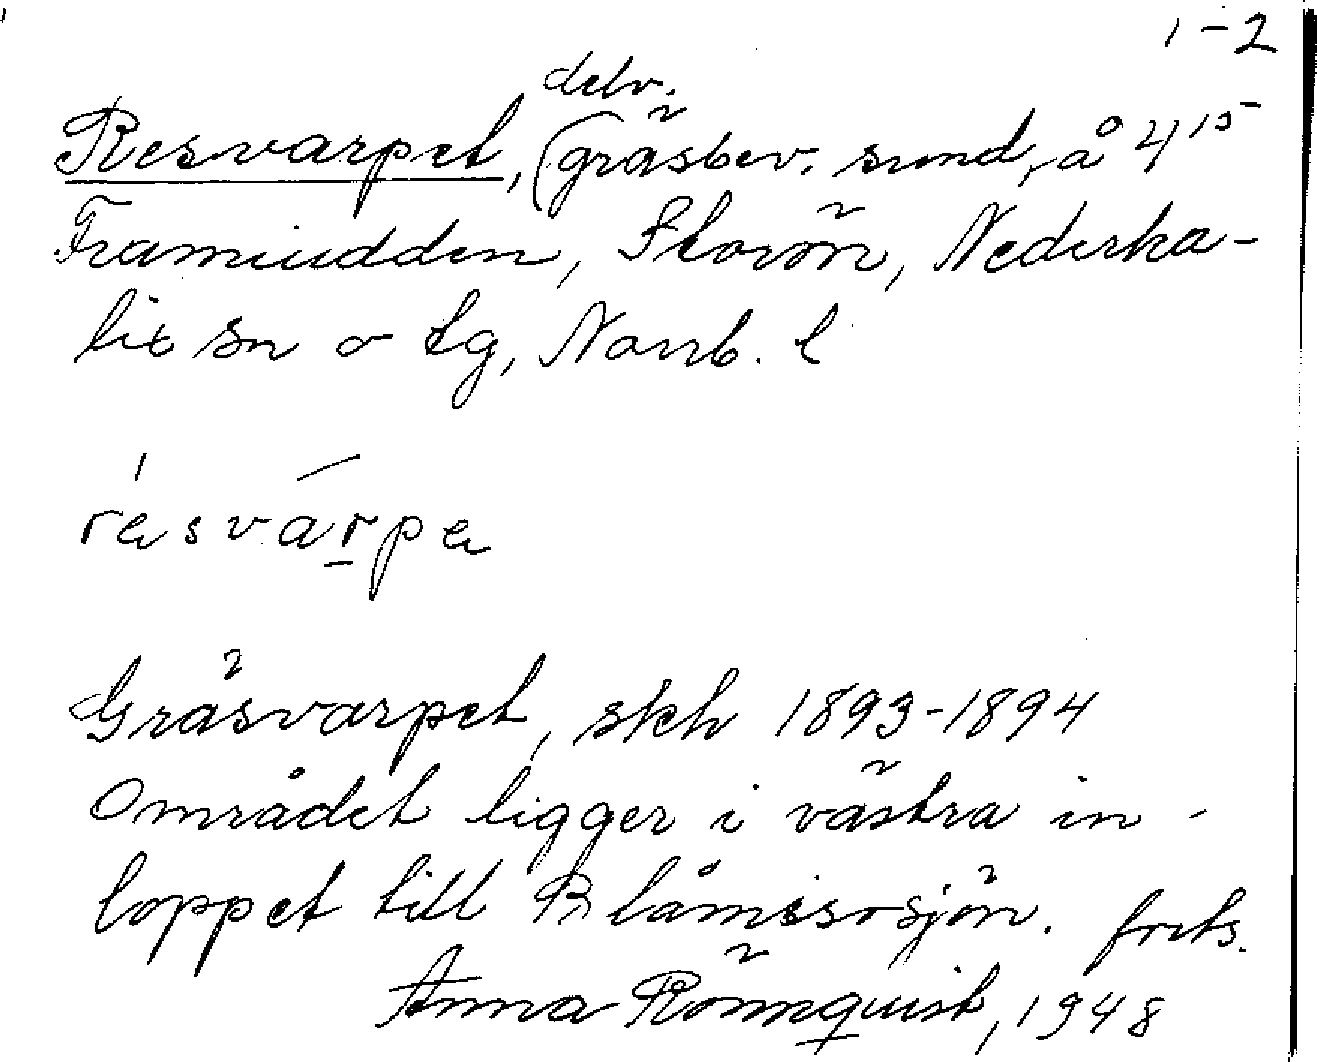 1-2
delv.
Resvarpet, (gräsbev. sund, å 4 15
Framiudden, Storön, Nederka-
lix sn o tg, Norrb. l
résvárpe
Gräsvarpet, skh 1893-1894
Området ligger i västra in-
loppet till Blåmissosjön. forts.
Anna Rönnquist, 1948